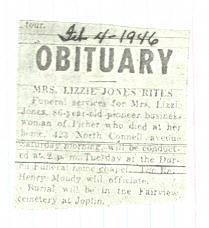 tour.
Feb 4-1946
OBITUARY
MRS. LIZZIE JONES RITES
Funeral services for Mrs. Lizzie
Jones, 86-year-old pioneer business
woman of Picher who died at her
home, 423 North Connell avenue
Saturday morning, will be conduct-
ed at 2 p. m. Tuesday at the Dur-
Funeral home chapel. The Re
Henry Moudy will officiate.
Burial will be in the Fairview
cemetery at Joplin.